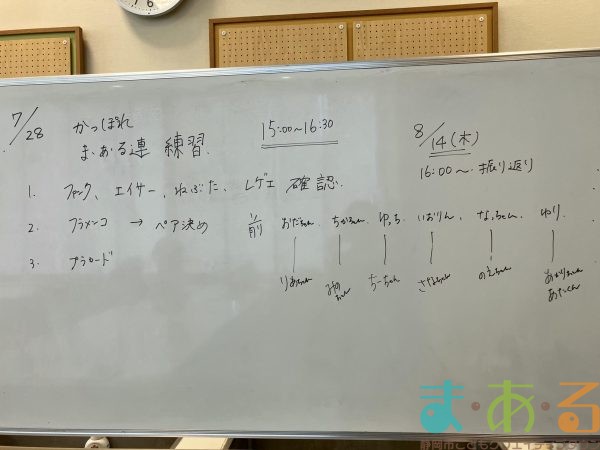 7/28 かっぽれ 15:00～16:30
ま・あ・る連 練習.
8/14(木)
16:00～ 振り返り
1. ファンク、エイサー、ねぶた、レゲエ 確認.
2. フラメンコ → ペア決め
前 おだちゃん. ちかちゃん. ゆっち. いおりん. なっちゃん. ゆり.
りおちゃん ちーちゃん さなちゃん のえちゃん あかりちゃん
あたくん
3. プラカード
ま・あ・る
静岡市こどもクリエイティブタウン